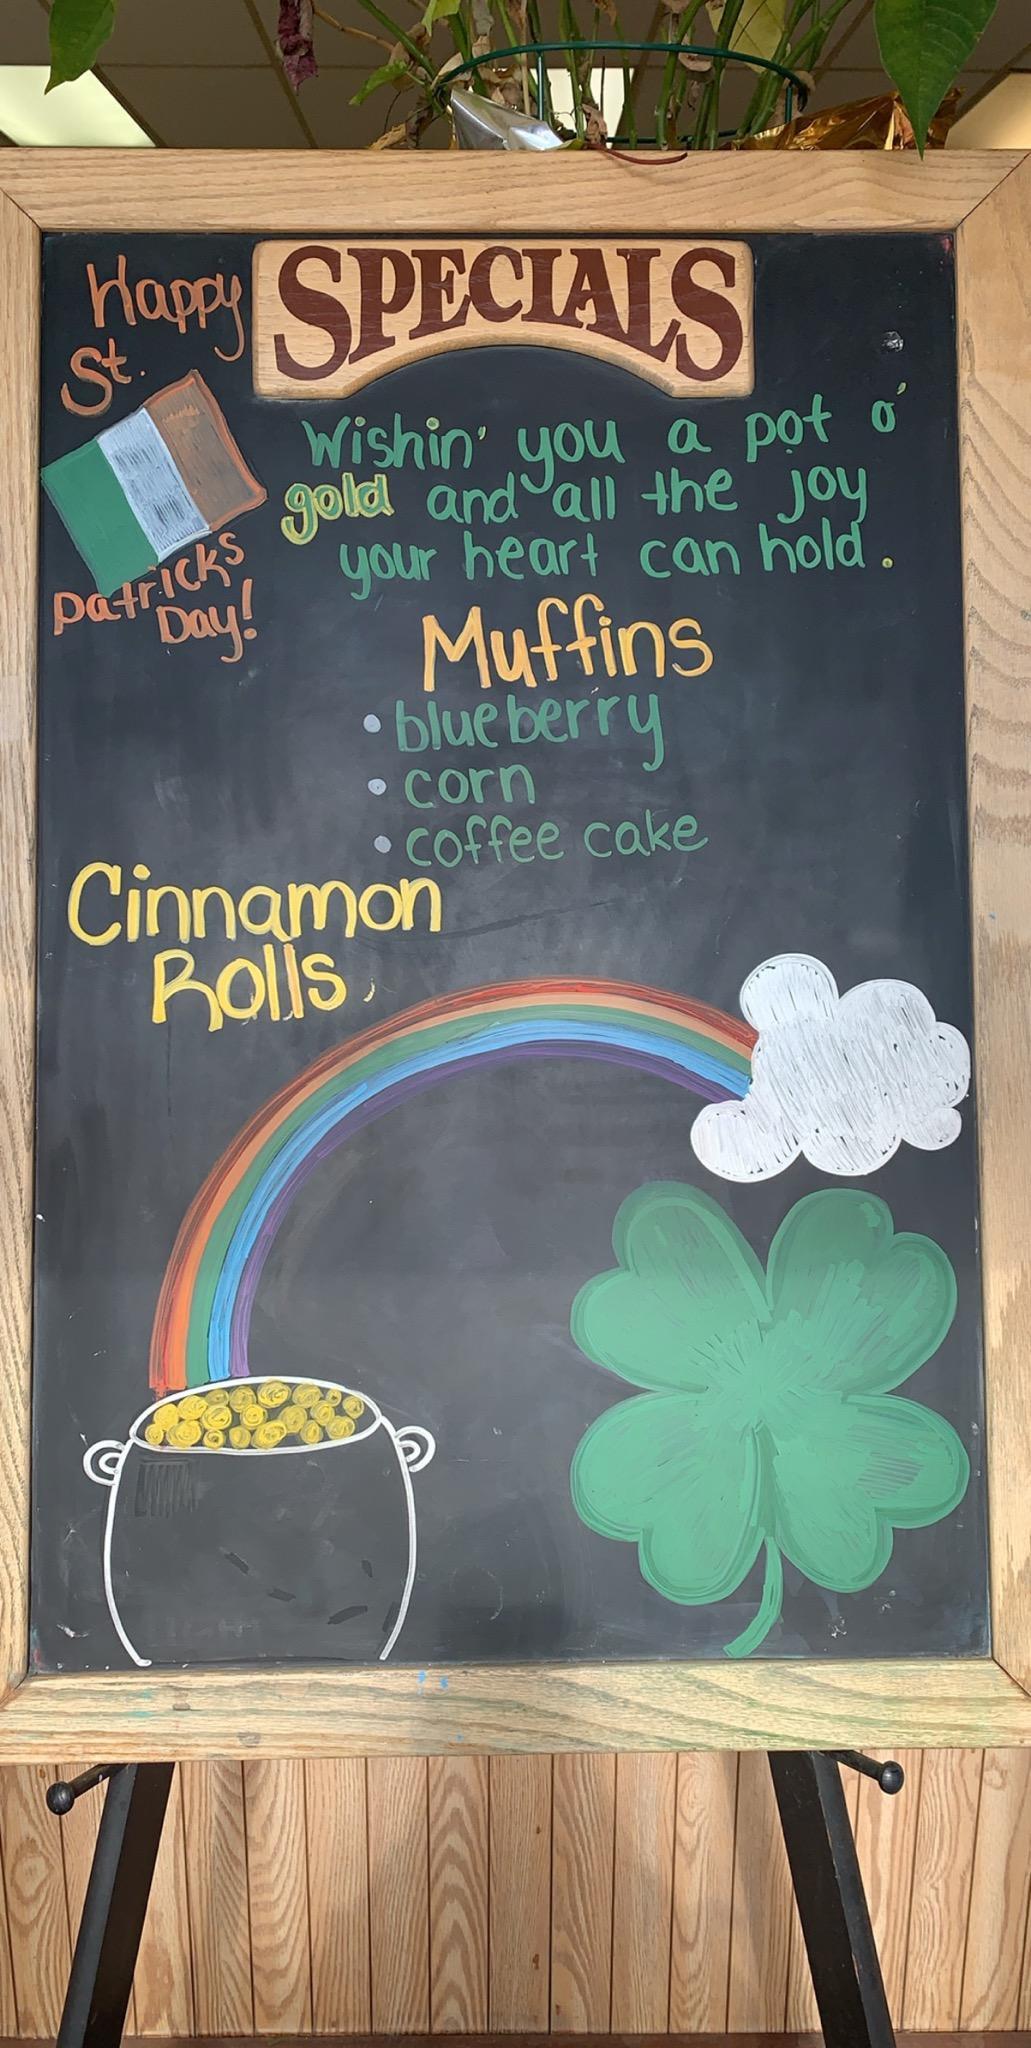 SPECIALS
Happy
St.
Patricks
Day!
Wishin' you a pot o'
gold and all the joy
your heart can hold.
Muffins
• blueberry
• corn
• coffee cake
Cinnamon
Rolls